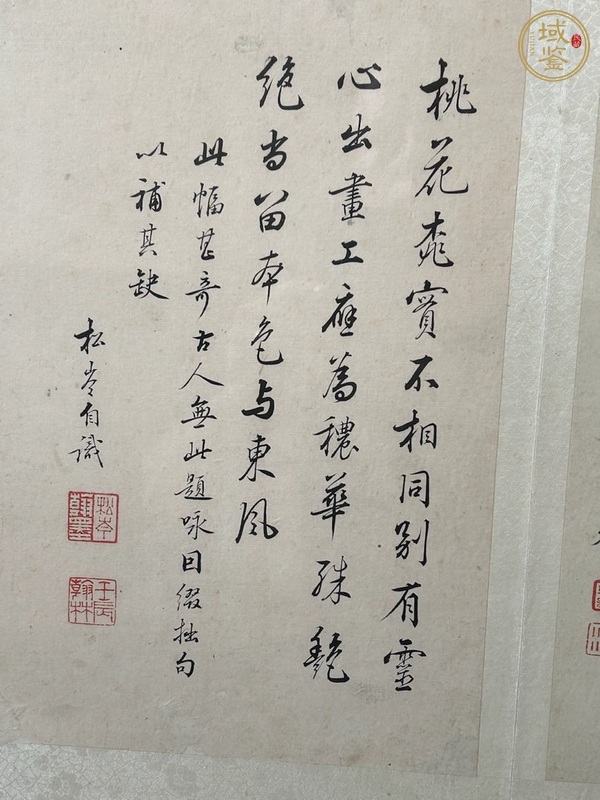 桃花桃實不相同別有靈
心出畫工應為穠華殊艷
絕尚留本色与東風
此幅甚奇古人無此題咏因綴拙句
以補其缺
松岺自識
松岑翰墨
壬辰翰林
域鉴